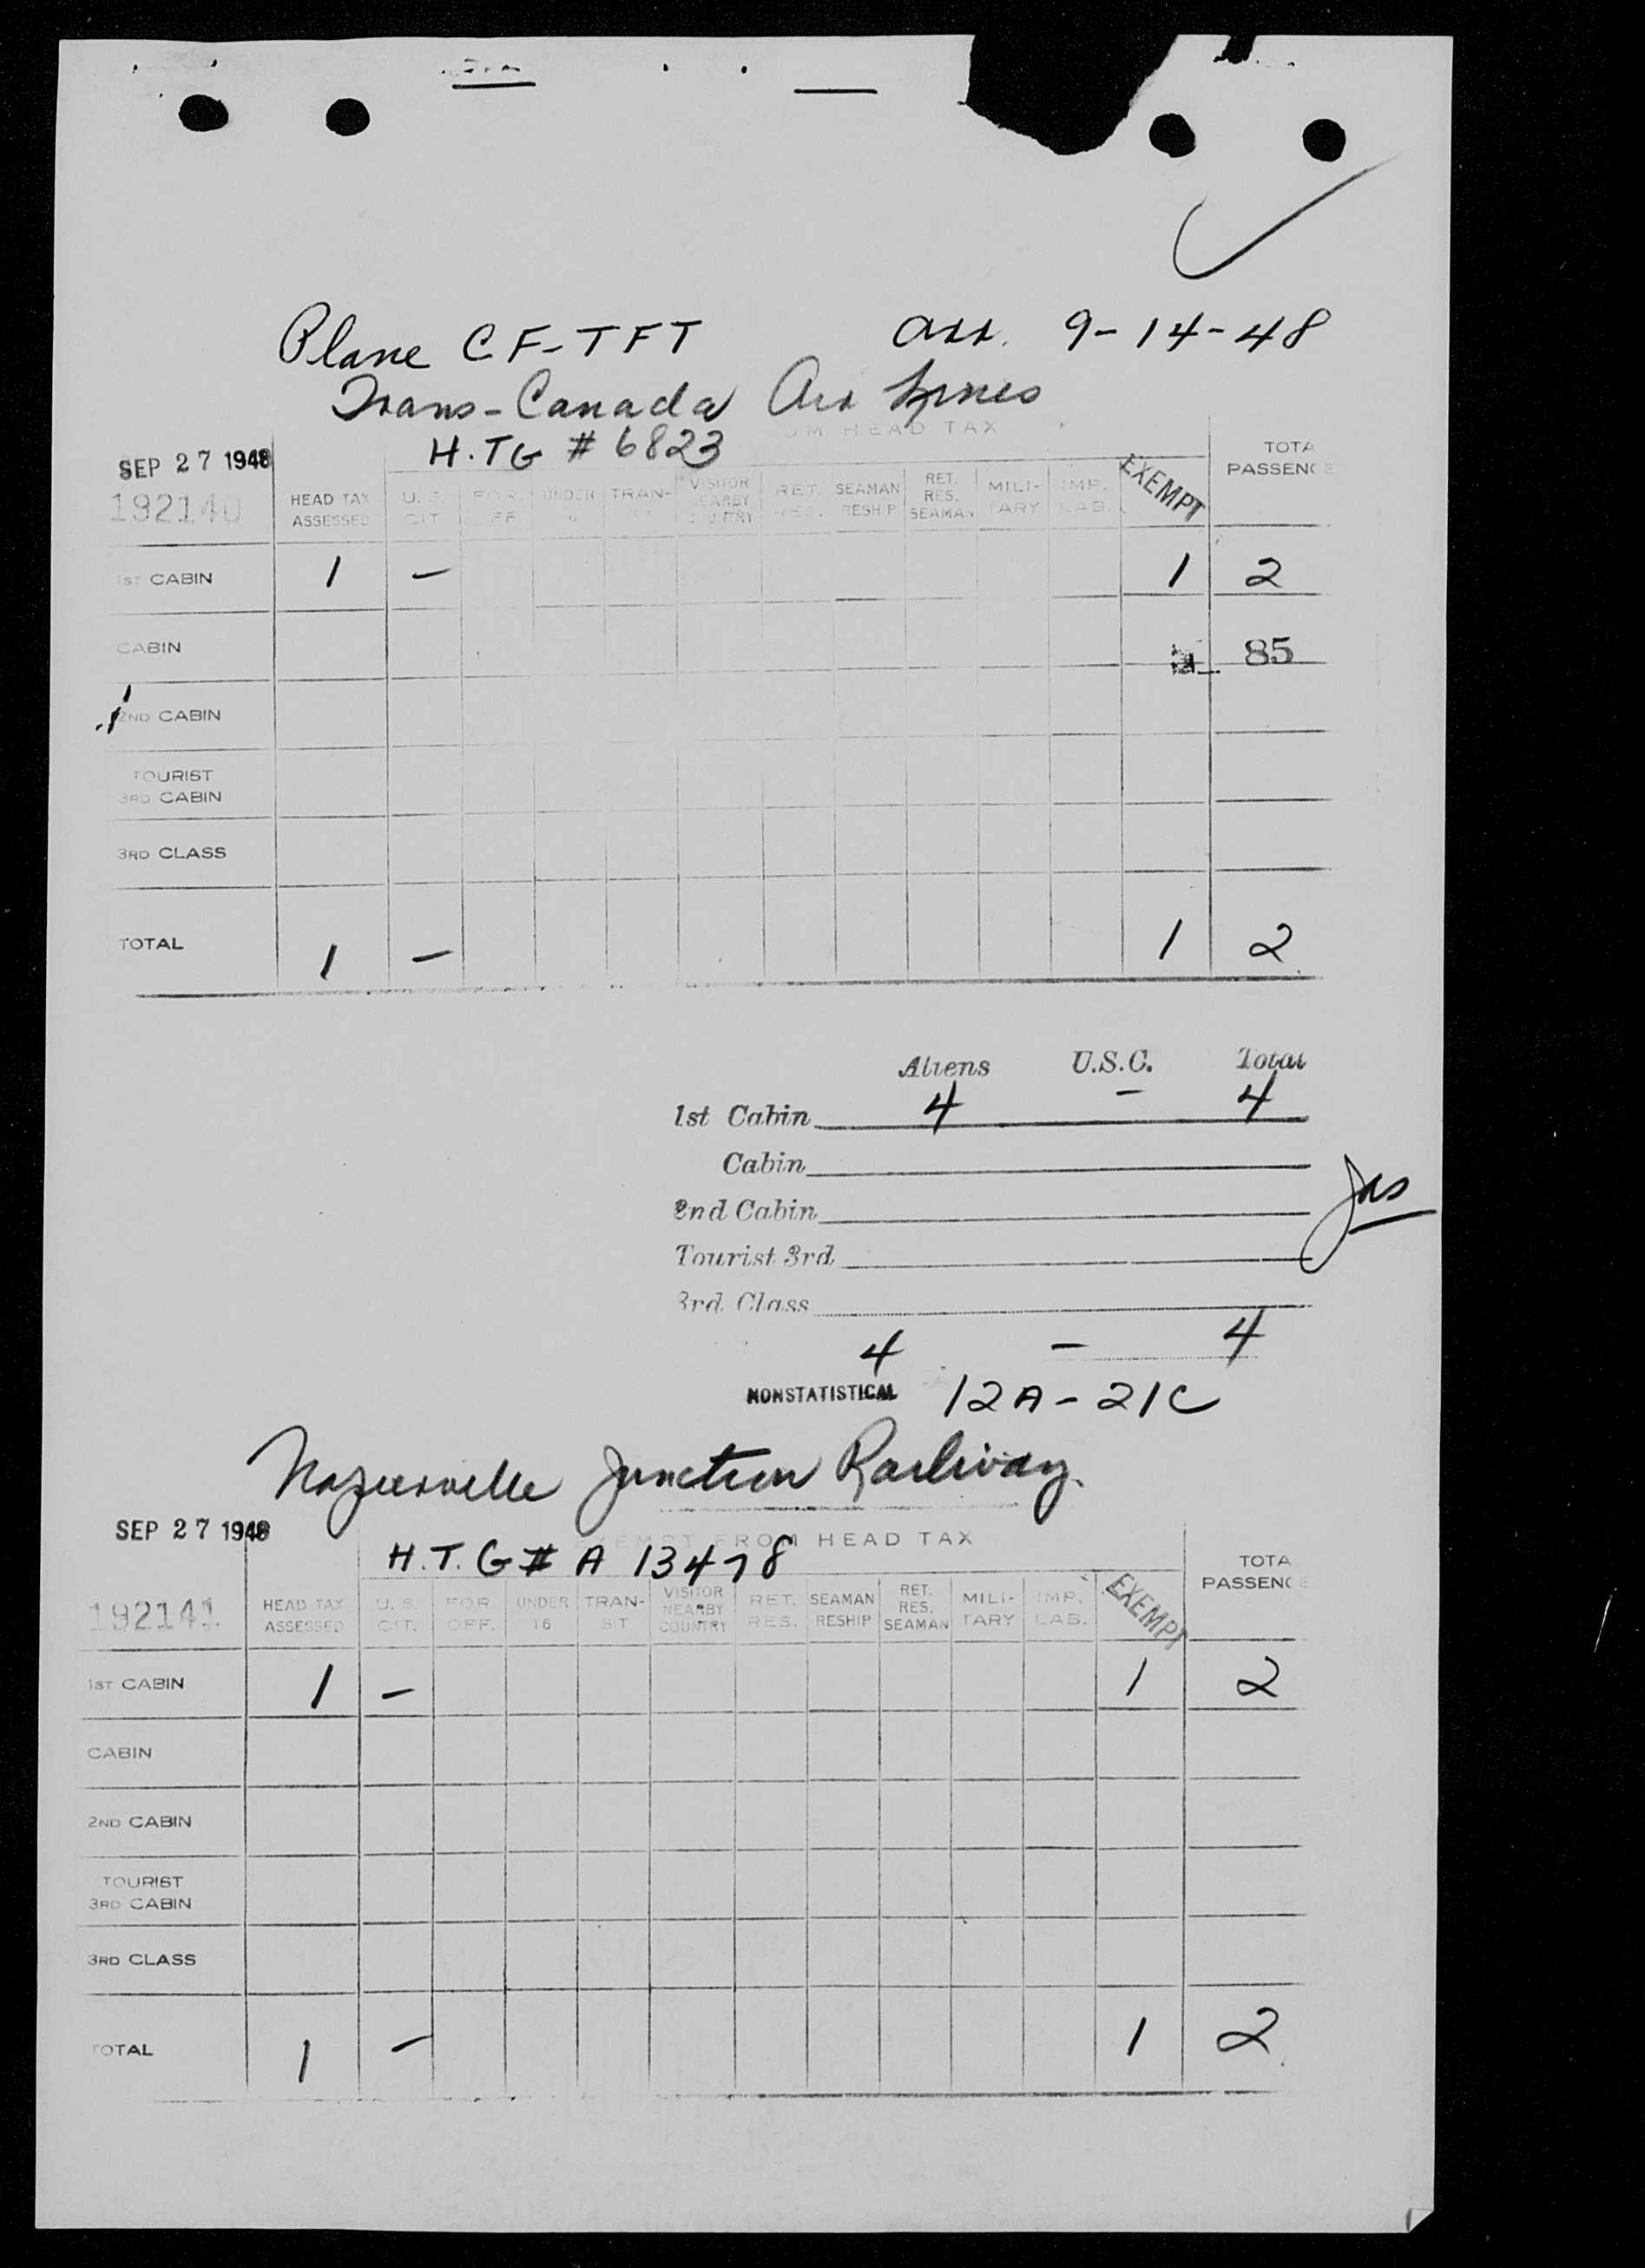 Plane CF-TFT arr. 9-14-48
Trans-Canada Air Lines
H.TG # 6823
OM HEAD TAX
SEP 27 1948
192140
HEAD TAX ASSESSED
U. S. CIT
FOR. FF
UNDER
TRAN-
VISITOR NEARBY COUNTRY
RET. RES.
SEAMAN RESHIP
RET. RES. SEAMAN
MILI- TARY
IMP. LAB.
EXEMPT
TOTA PASSENGE
1ST CABIN 1 - 1 2
CABIN 85
2ND CABIN
TOURIST
3RD CABIN
3RD CLASS
TOTAL 1 - 1 2
Aliens U.S.C. Total
1st Cabin 4 - 4
Cabin
2nd Cabin
Jas
Tourist 3rd
3rd Class
4 - 4
NONSTATISTICAL 12A-21C
Napierville Junction Railway.
SEP 27 1948
EXEMPT FROM HEAD TAX
H.T.G# A 13478
192141
HEAD TAX ASSESSED
U. S. CIT.
FOR. OFF.
UNDER 16
TRAN- SIT
VISITOR NEARBY COUNTRY
RET. RES.
SEAMAN RESHIP
RET. RES. SEAMAN
MILI- TARY
IMP. LAB.
EXEMPT
TOTA PASSENGE
1ST CABIN 1 - 1 2
CABIN
2ND CABIN
TOURIST
3RD CABIN
3RD CLASS
TOTAL 1 - 1 2